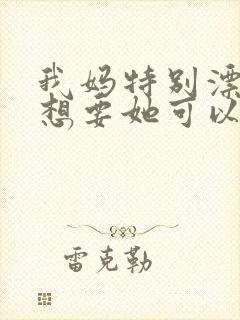 我妈特别漂
想要她可以
雷克勒